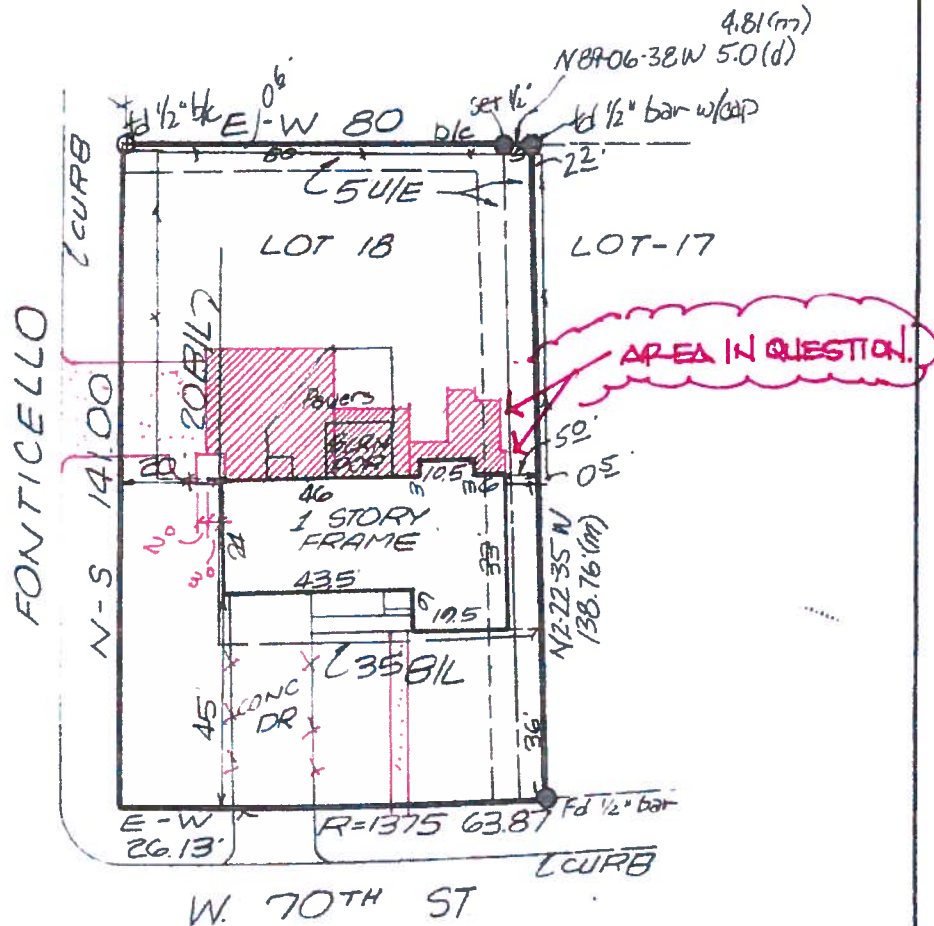 4.81(m)
N89-06-38W 5.0(d)
fd 1/2" b/c E-W 80
set 1/2"
b/c
fd 1/2" bar w/cap
80
5
2²'
5 U/E
CURB
LOT 18
LOT-17
FONTICELLO
N-S 141.00
20 B/L
AREA IN QUESTION.
Pavers
5⁰'
0⁵
20
46
3
10.5
3
6
1 STORY
FRAME
21
33
43.5
6
19.5
N2-22-35 W
138.76(m)
35 B/L
45
CONC
DR
36'
Fd 1/2" bar
E-W
26.13'
R=1375 63.87
CURB
W. 70TH ST